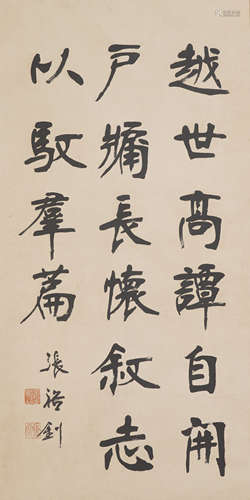 越世高譚自開
戶牖長懷敘志
以馭羣篇
張裕釗